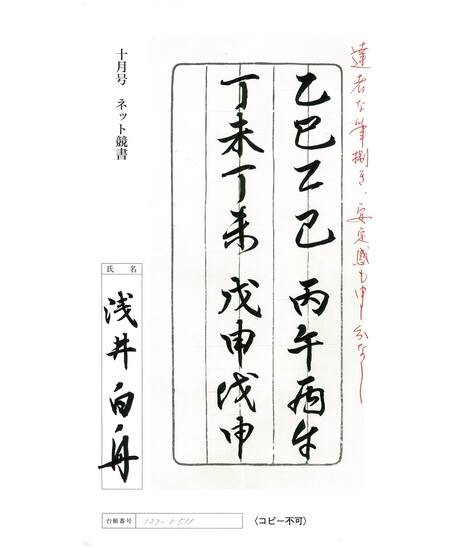 達者な筆捌き、安定感も申し分なし
乙巳乙巳 丙午丙午
丁未丁未 戊申戊申
十月号 ネット競書
氏名
浅井白舟
台帳番号 127-0511
〈コピー不可〉